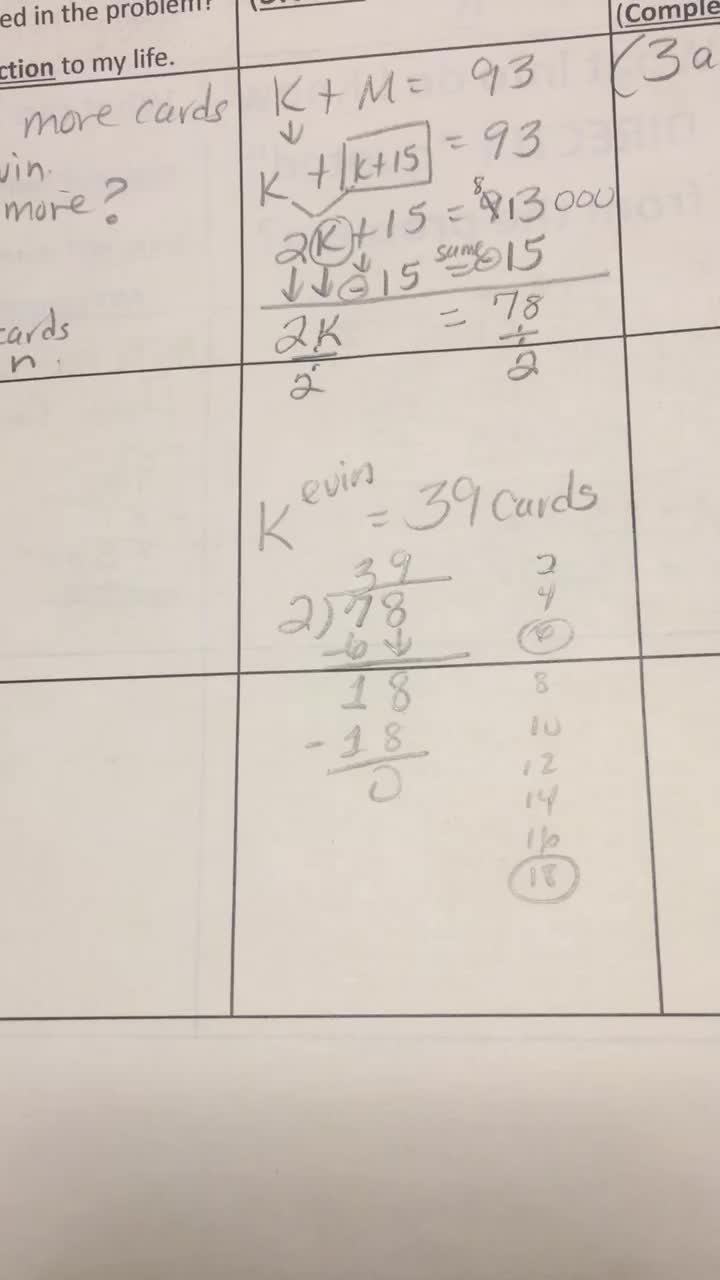 ed in the problem?
ction to my life.
(Comple
more cards
vin.
more?
cards
n
K + M = 93
K + K+15 = 93
2K + 15 = 8 913 000
- 15 same = - 15
2K = 78
2 ÷ 2
(3 a
Kevins = 39 cards
39
2)78
-6
18
- 18
0
2
4
6
8
10
12
14
16
18